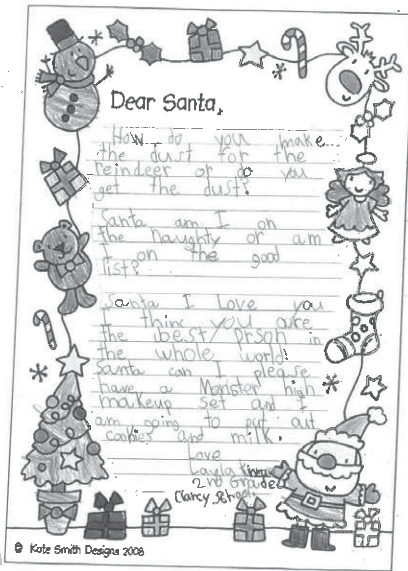 Dear Santa,
How do you make
the dust for the
reindeer or do you
get the dust?
Santa am I on
the naughty or am
I on the good
list?
Santa I Love you
I thinc you are
the best prson in
the whole world!
Santa can I please
have a Monster high
makeup set and I
am going to put out
cookies and milk.
Love
Layla
2nd Grade
Clancy School
© Kate Smith Designs 2008